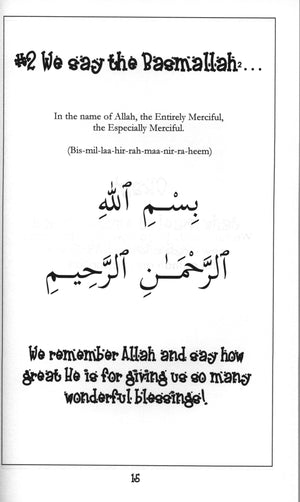 #2 We say the Basmallah²...
In the name of Allah, the Entirely Merciful,
the Especially Merciful.
(Bis-mil-laa-hir-rah-maa-nir-ra-heem)
بِسْمِ ٱللَّهِ
ٱلرَّحْمَـٰنِ ٱلرَّحِيمِ
We remember Allah and say how
great He is for giving us so many
wonderful blessings!
15